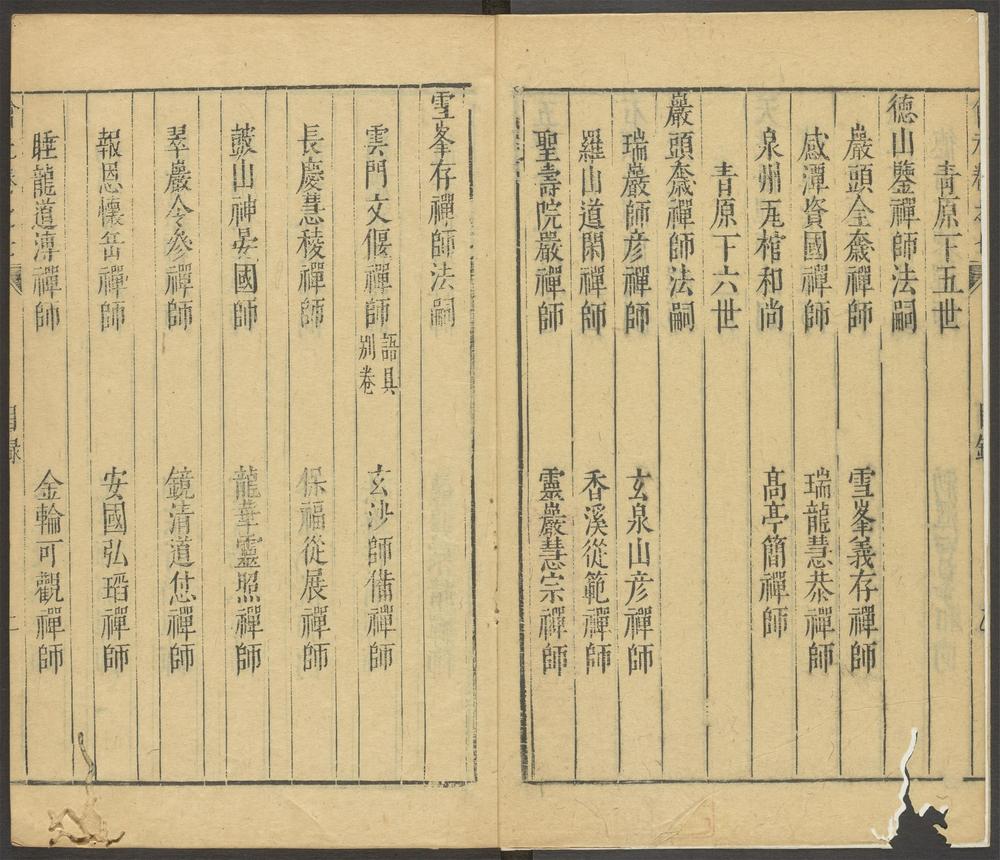 青原下五世
德山鑒禪師法嗣
巖頭全奯禪師 雪峯義存禪師
感潭資國禪師 瑞龍慧恭禪師
泉州瓦棺和尚 高亭簡禪師
青原下六世
巖頭奯禪師法嗣
瑞巖師彥禪師 玄泉山彥禪師
羅山道閑禪師 香溪從範禪師
聖壽院嚴禪師 靈巖慧宗禪師
雪峯存禪師法嗣
雲門文偃禪師 語具別卷 玄沙師備禪師
長慶慧稜禪師 保福從展禪師
鼓山神晏國師 龍華靈照禪師
翠巖令參禪師 鏡清道怤禪師
報恩懷岳禪師 安國弘瑫禪師
睡龍道溥禪師 金輪可觀禪師
目録